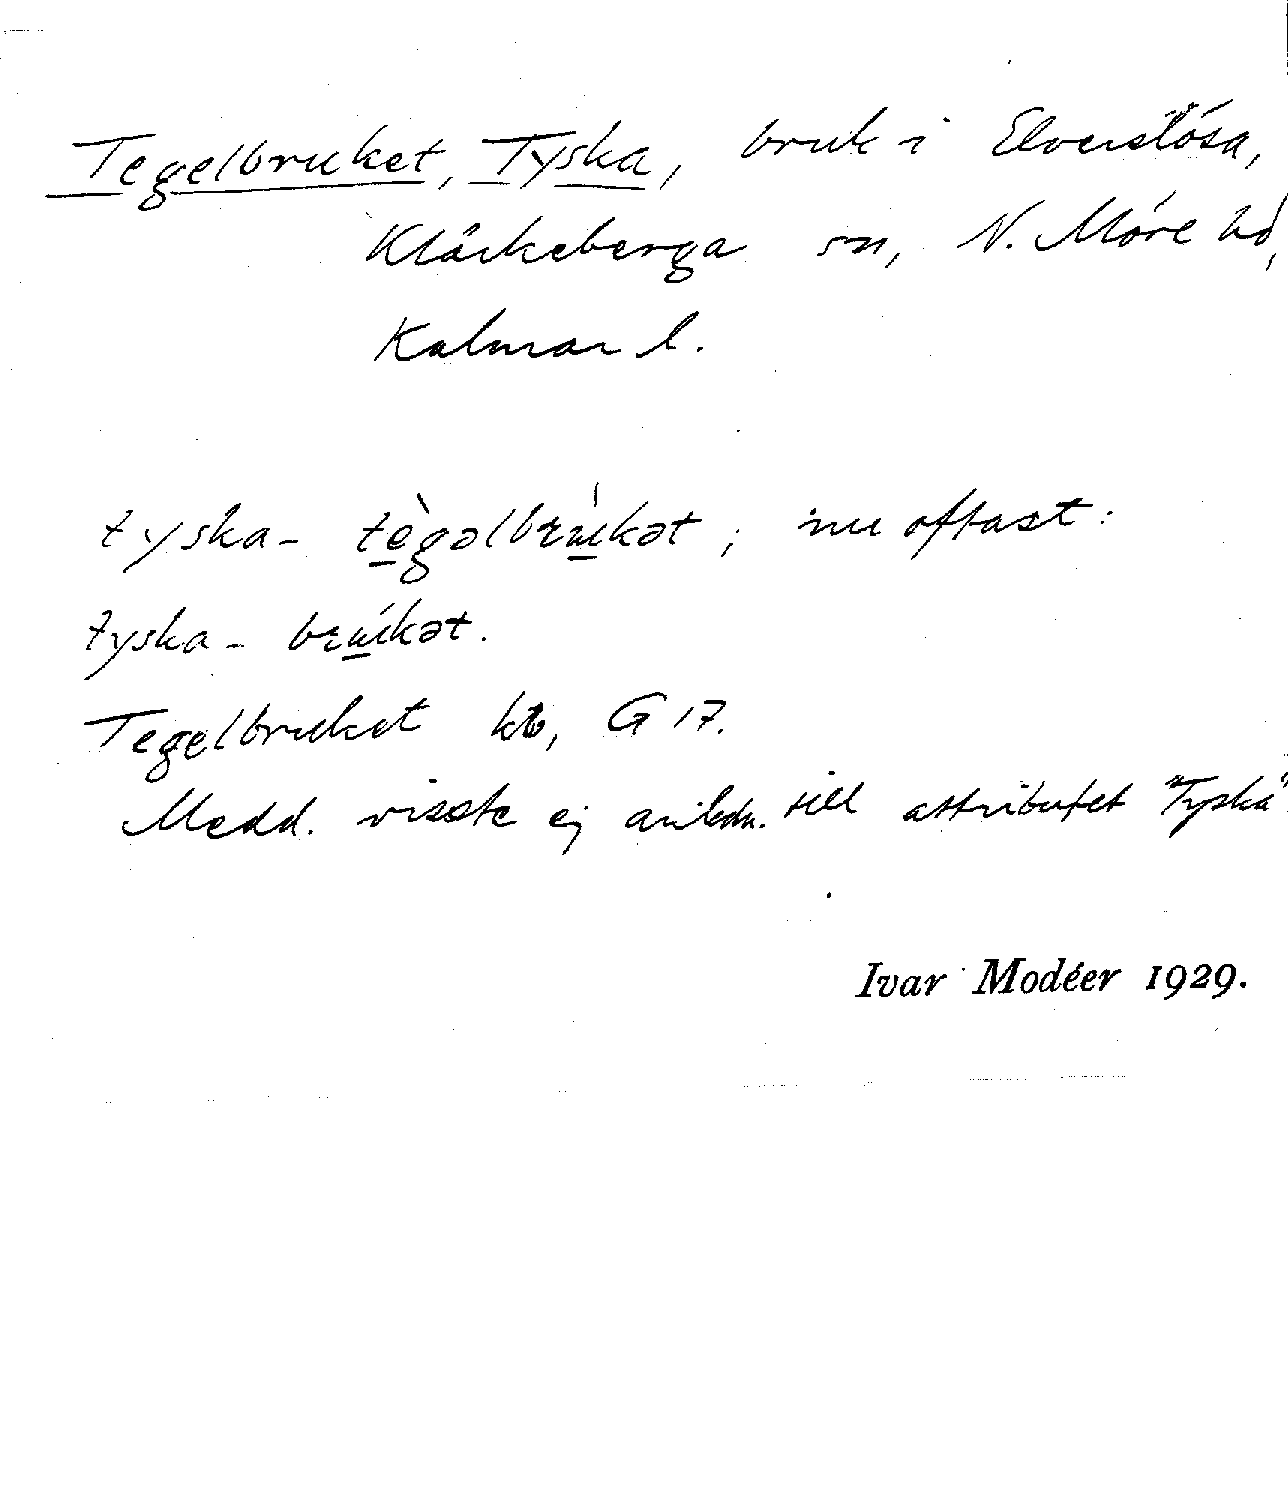 Tegelbruket, Tyska, bruk i Elverslösa,
Kläckeberga sn, N. Möre hd,
Kalmar l.
tyska- tègəlbrúkət ; nu oftast:
tyska- brúkət.
Tegelbruket kb, G 17.
Medd. visste ej anledn. till attributet "Tyska"
Ivar Modéer 1929.